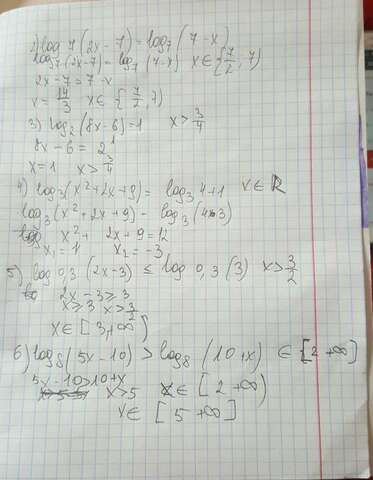 2) log 7 (2x - 7) = log₇ (7 - x)
log₇ (2x - 7) = log₇ (7 - x) x ∈ {7/2, 7)
2x - 7 = 7 - x
x = 14/3 x ∈ { 7/2, 7)
3) log₂ (8x - 6) = 1 x > 3/4
8x - 6 = 2¹
x = 1 x > 3/4
4) log₃ (x² + 2x + 9) = log₃ 4 + 1 x ∈ R
log₃ (x² + 2x + 9) = log₃ (4·3)
x² + 2x + 9 = 12
x₁ = 1 x₂ = -3
5) log 0,3 (2x - 3) ≤ log 0,3 (3) x > 3/2
2x - 3 ≥ 3
x ≥ 3 x > 3/2
x ∈ [3, +∞)
6) log₈ (5x - 10) > log₈ (10 + x) ∈ [2 +∞)
5x - 10 > 10 + x
x > 5 x ∈ [2 +∞)
x ∈ [5 +∞]